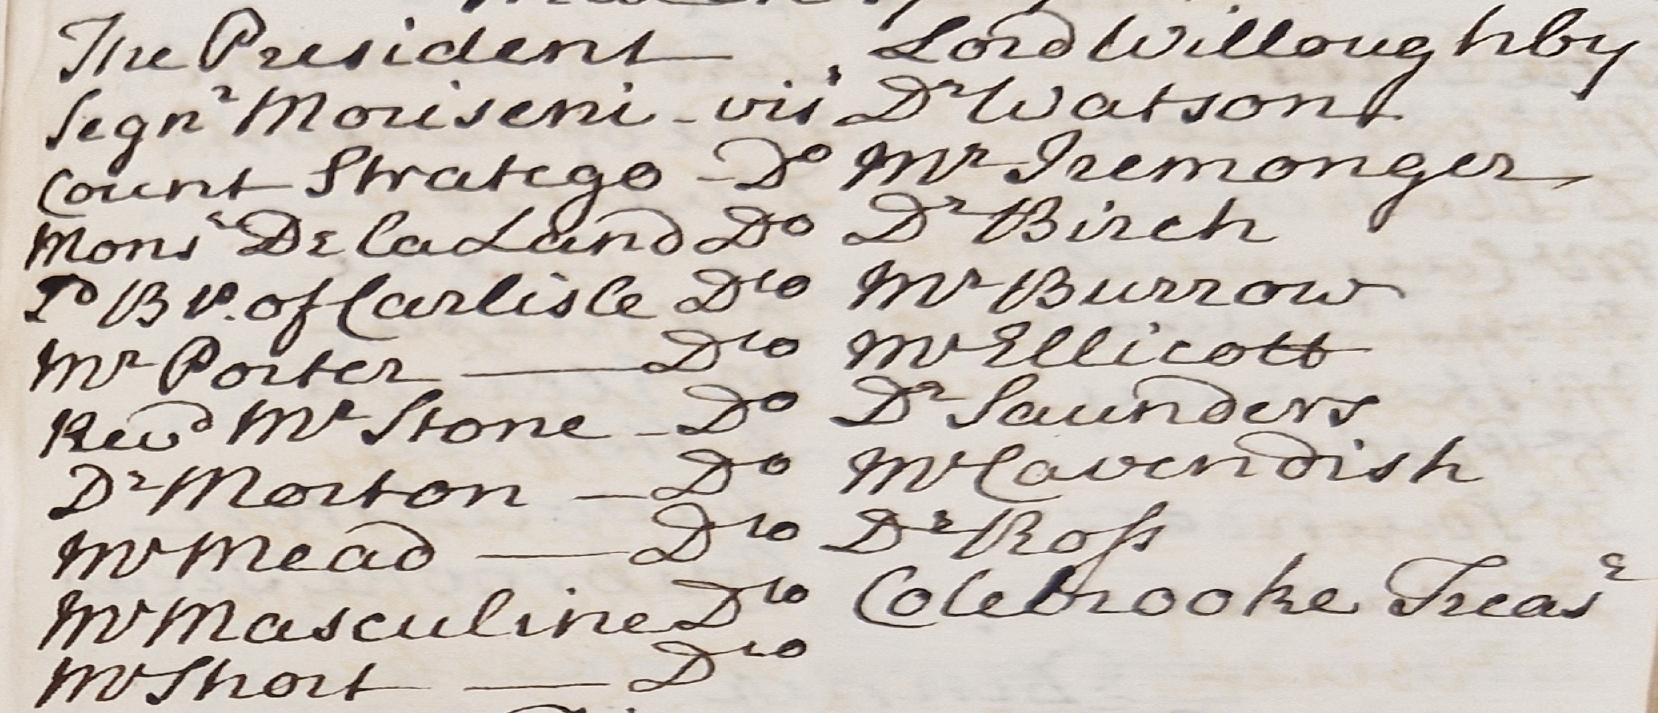 The President Lord Willoughby
Segnr Moriseni - vis Dr Watson
Count Stratego - Do Mr Iremonger
Monsr De la Land Do Dr Birch
Ld Bp. of Carlisle Dto Mr Burrow
Mr Porter Dto Mr Ellicott
Revd Mr Stone - Do Dr Saunders
Dr Morton - Do Mr Cavendish
Mr Mead Dto Dr Ross
Mr Masculine Dto Colebrooke Treasr
Mr Short Dto